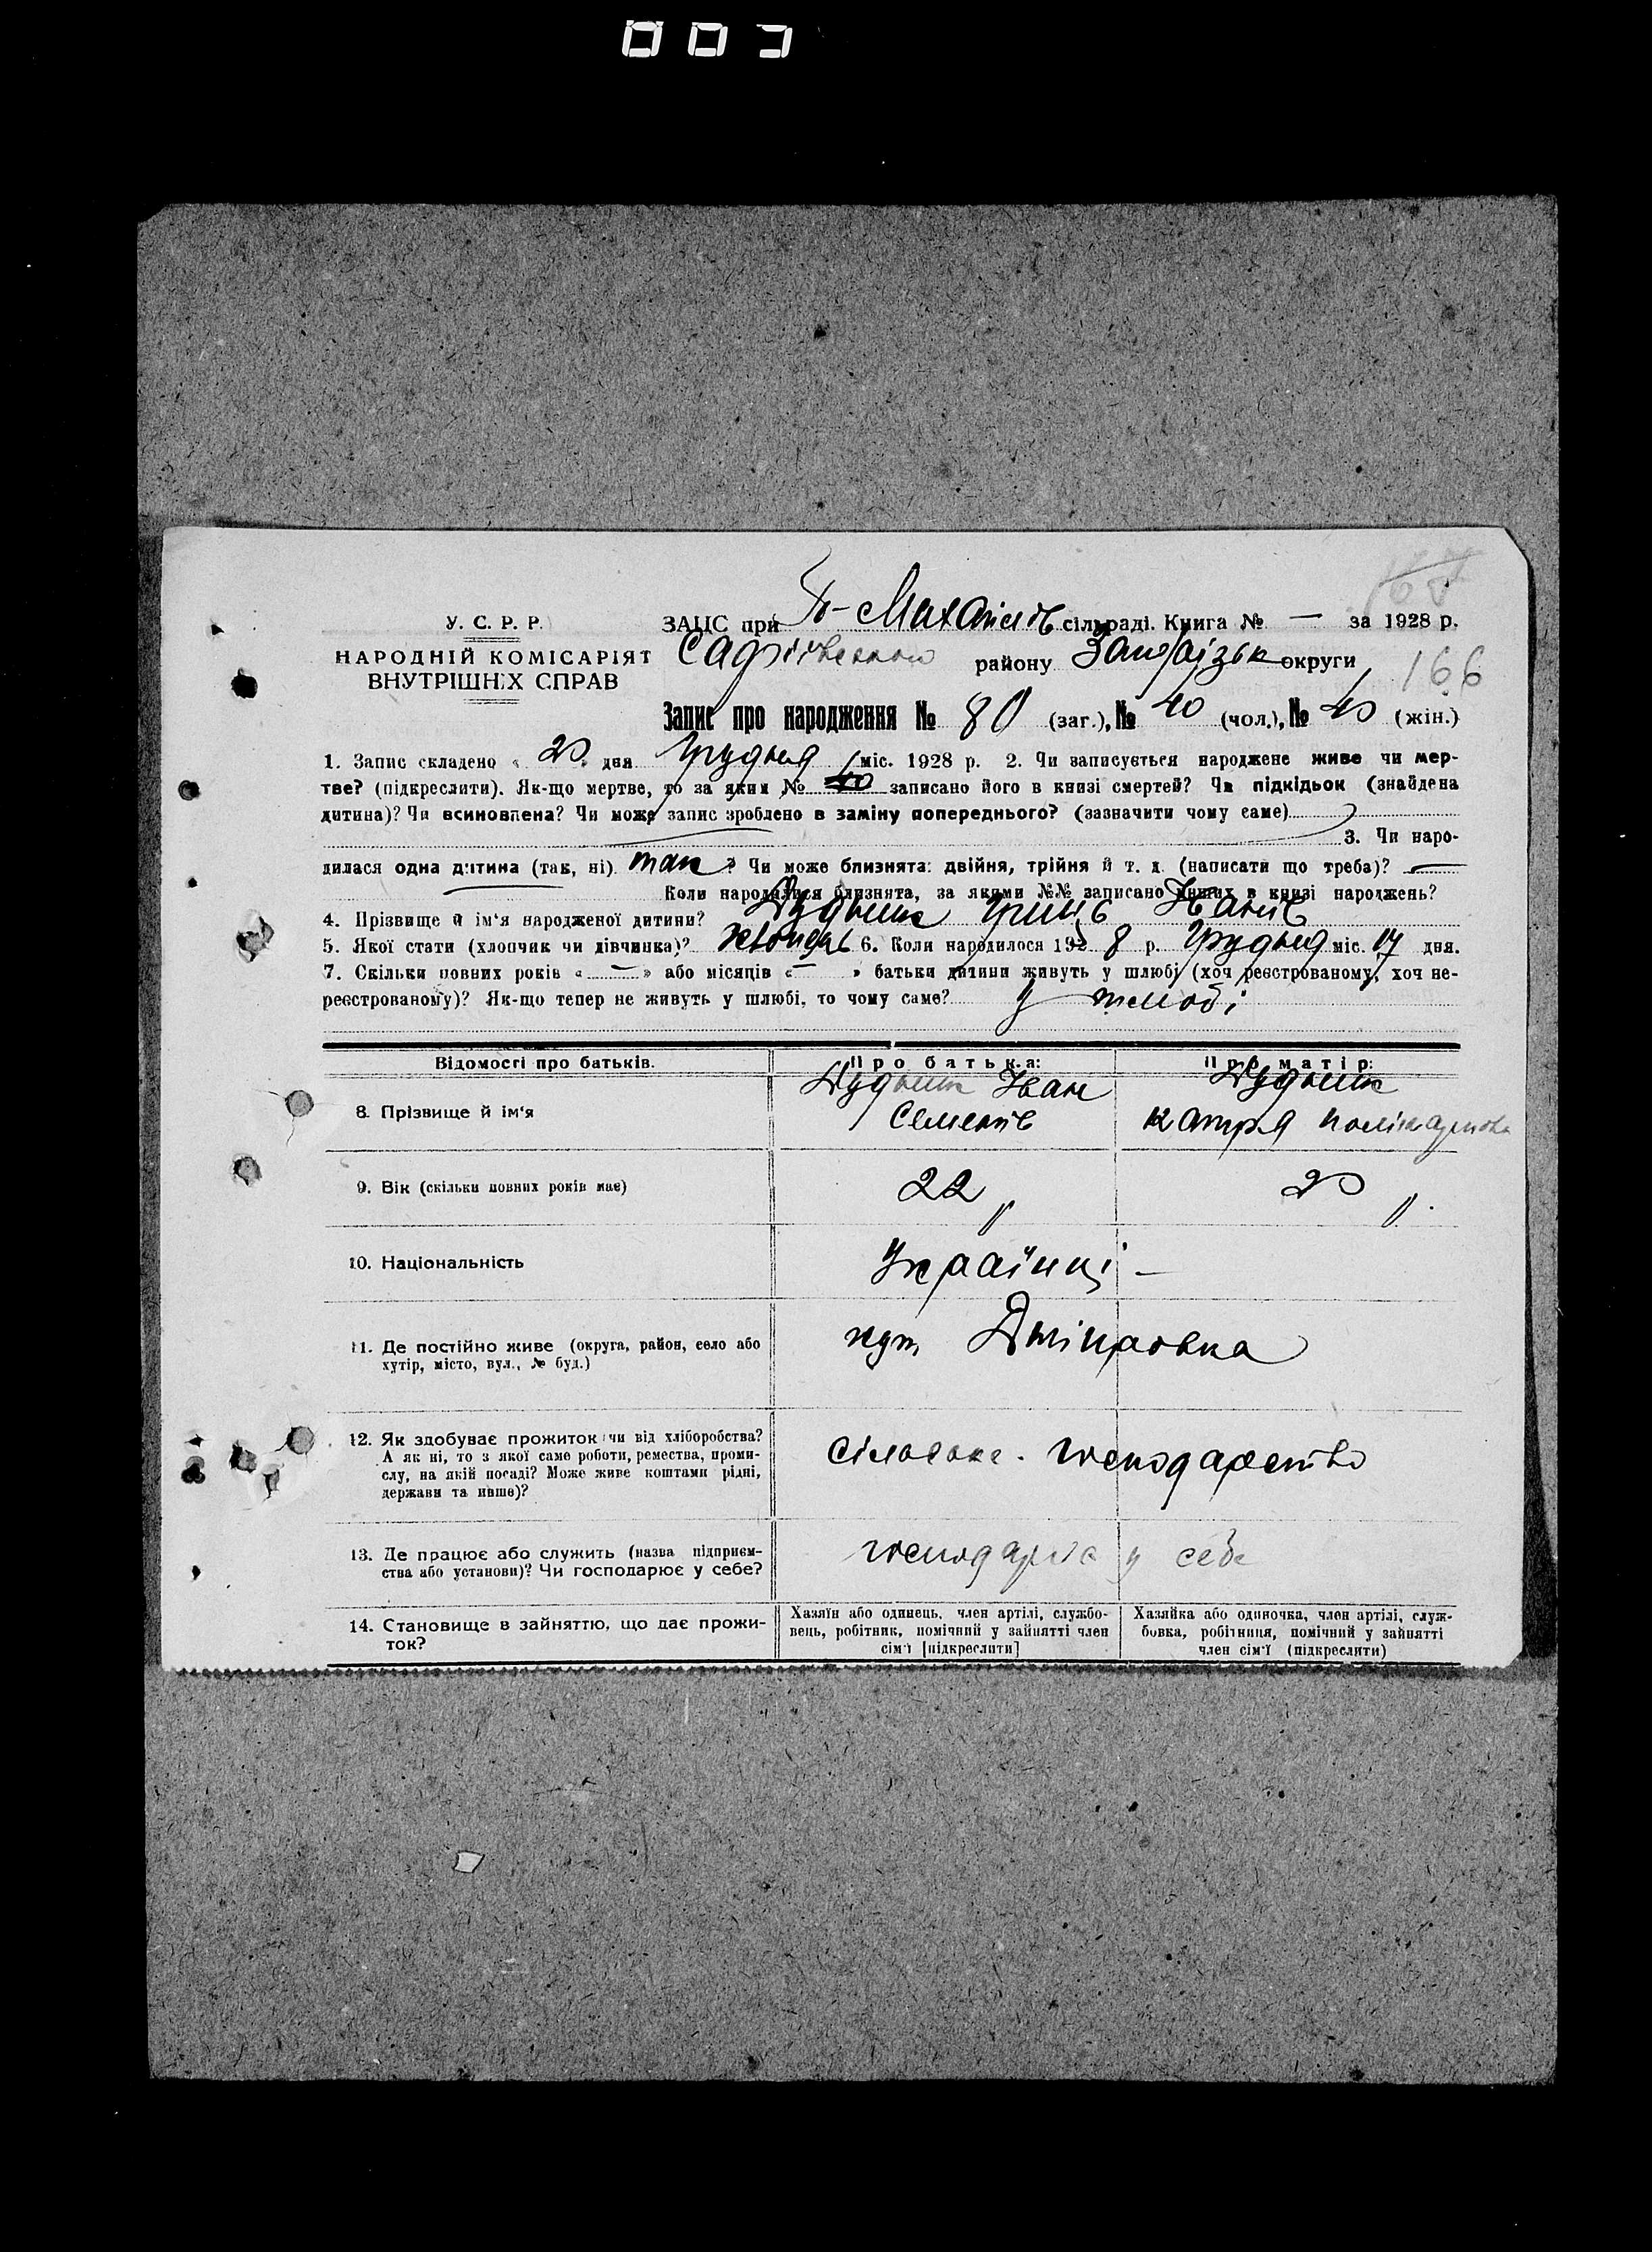 003
У. С. Р. Р.
НАРОДНІЙ КОМІСАРІЯТ
ВНУТРІШНІХ СПРАВ
ЗАЦС при сільраді. Книга № — за 1928 р.
району округи
166
Запис про народження № 80 (заг.), № 40 (чол.), № 40 (жін.)
1. Запис складено « 20 » дня Грудня міс. 1928 р. 2. Чи записується народжене живе чи мер-
тве? (підкреслити). Як-що мертве, то за яким № записано його в книзі смертей? Чи підкідьок (знайдена
дитина)? Чи всиновлена? Чи може запис зроблено в заміну попереднього? (зазначити чому саме)
3. Чи наро-
дилася одна дитина (так, ні) так ? Чи може близнята: двійня, трійня й т. д. (написати що треба)? —
Коли народилися близнята, за якими №№ записано инших в книзі народжень?
4. Прізвище й ім'я народженої дитини? Дудник Гриць Іванів
5. Якої стати (хлопчик чи дівчинка)? хлопець 6. Коли народилося 192 8 р. Грудня міс. 17 дня.
7. Скільки повних років « — » або місяців « — » батьки дитини живуть у шлюбі (хоч реєстрованому, хоч не-
реєстрованому)? Як-що тепер не живуть у шлюбі, то чому саме? у шлюбі
Відомості про батьків. Про батька: Про матір:
8. Прізвище й ім'я Дудник Іван Семенів Дудник Катря Полікарпова
9. Вік (скільки повних років має) 22 р 20 р.
10. Національність Українці —
11. Де постійно живе (округа, район, село або
хутір, місто, вул., № буд.) хут
12. Як здобуває прожиток чи від хліборобства?
А як ні, то з якої саме роботи, ремества, проми-
слу, на якій посаді? Може живе коштами рідні,
держави та инше)?
сільське господарство
13. Де працює або служить (назва підприєм-
ства або установи)? Чи господарює у себе?
господарює у себе
14. Становище в зайняттю, що дає прожи-
ток?
Хазяїн або одинець, член артілі, службо-
вець, робітник, помічний у зайнятті член
сім'ї [підкреслити]
Хазяйка або одиночка, член артілі, служ-
бовка, робітниця, помічний у зайнятті
член сім'ї (підкреслити)